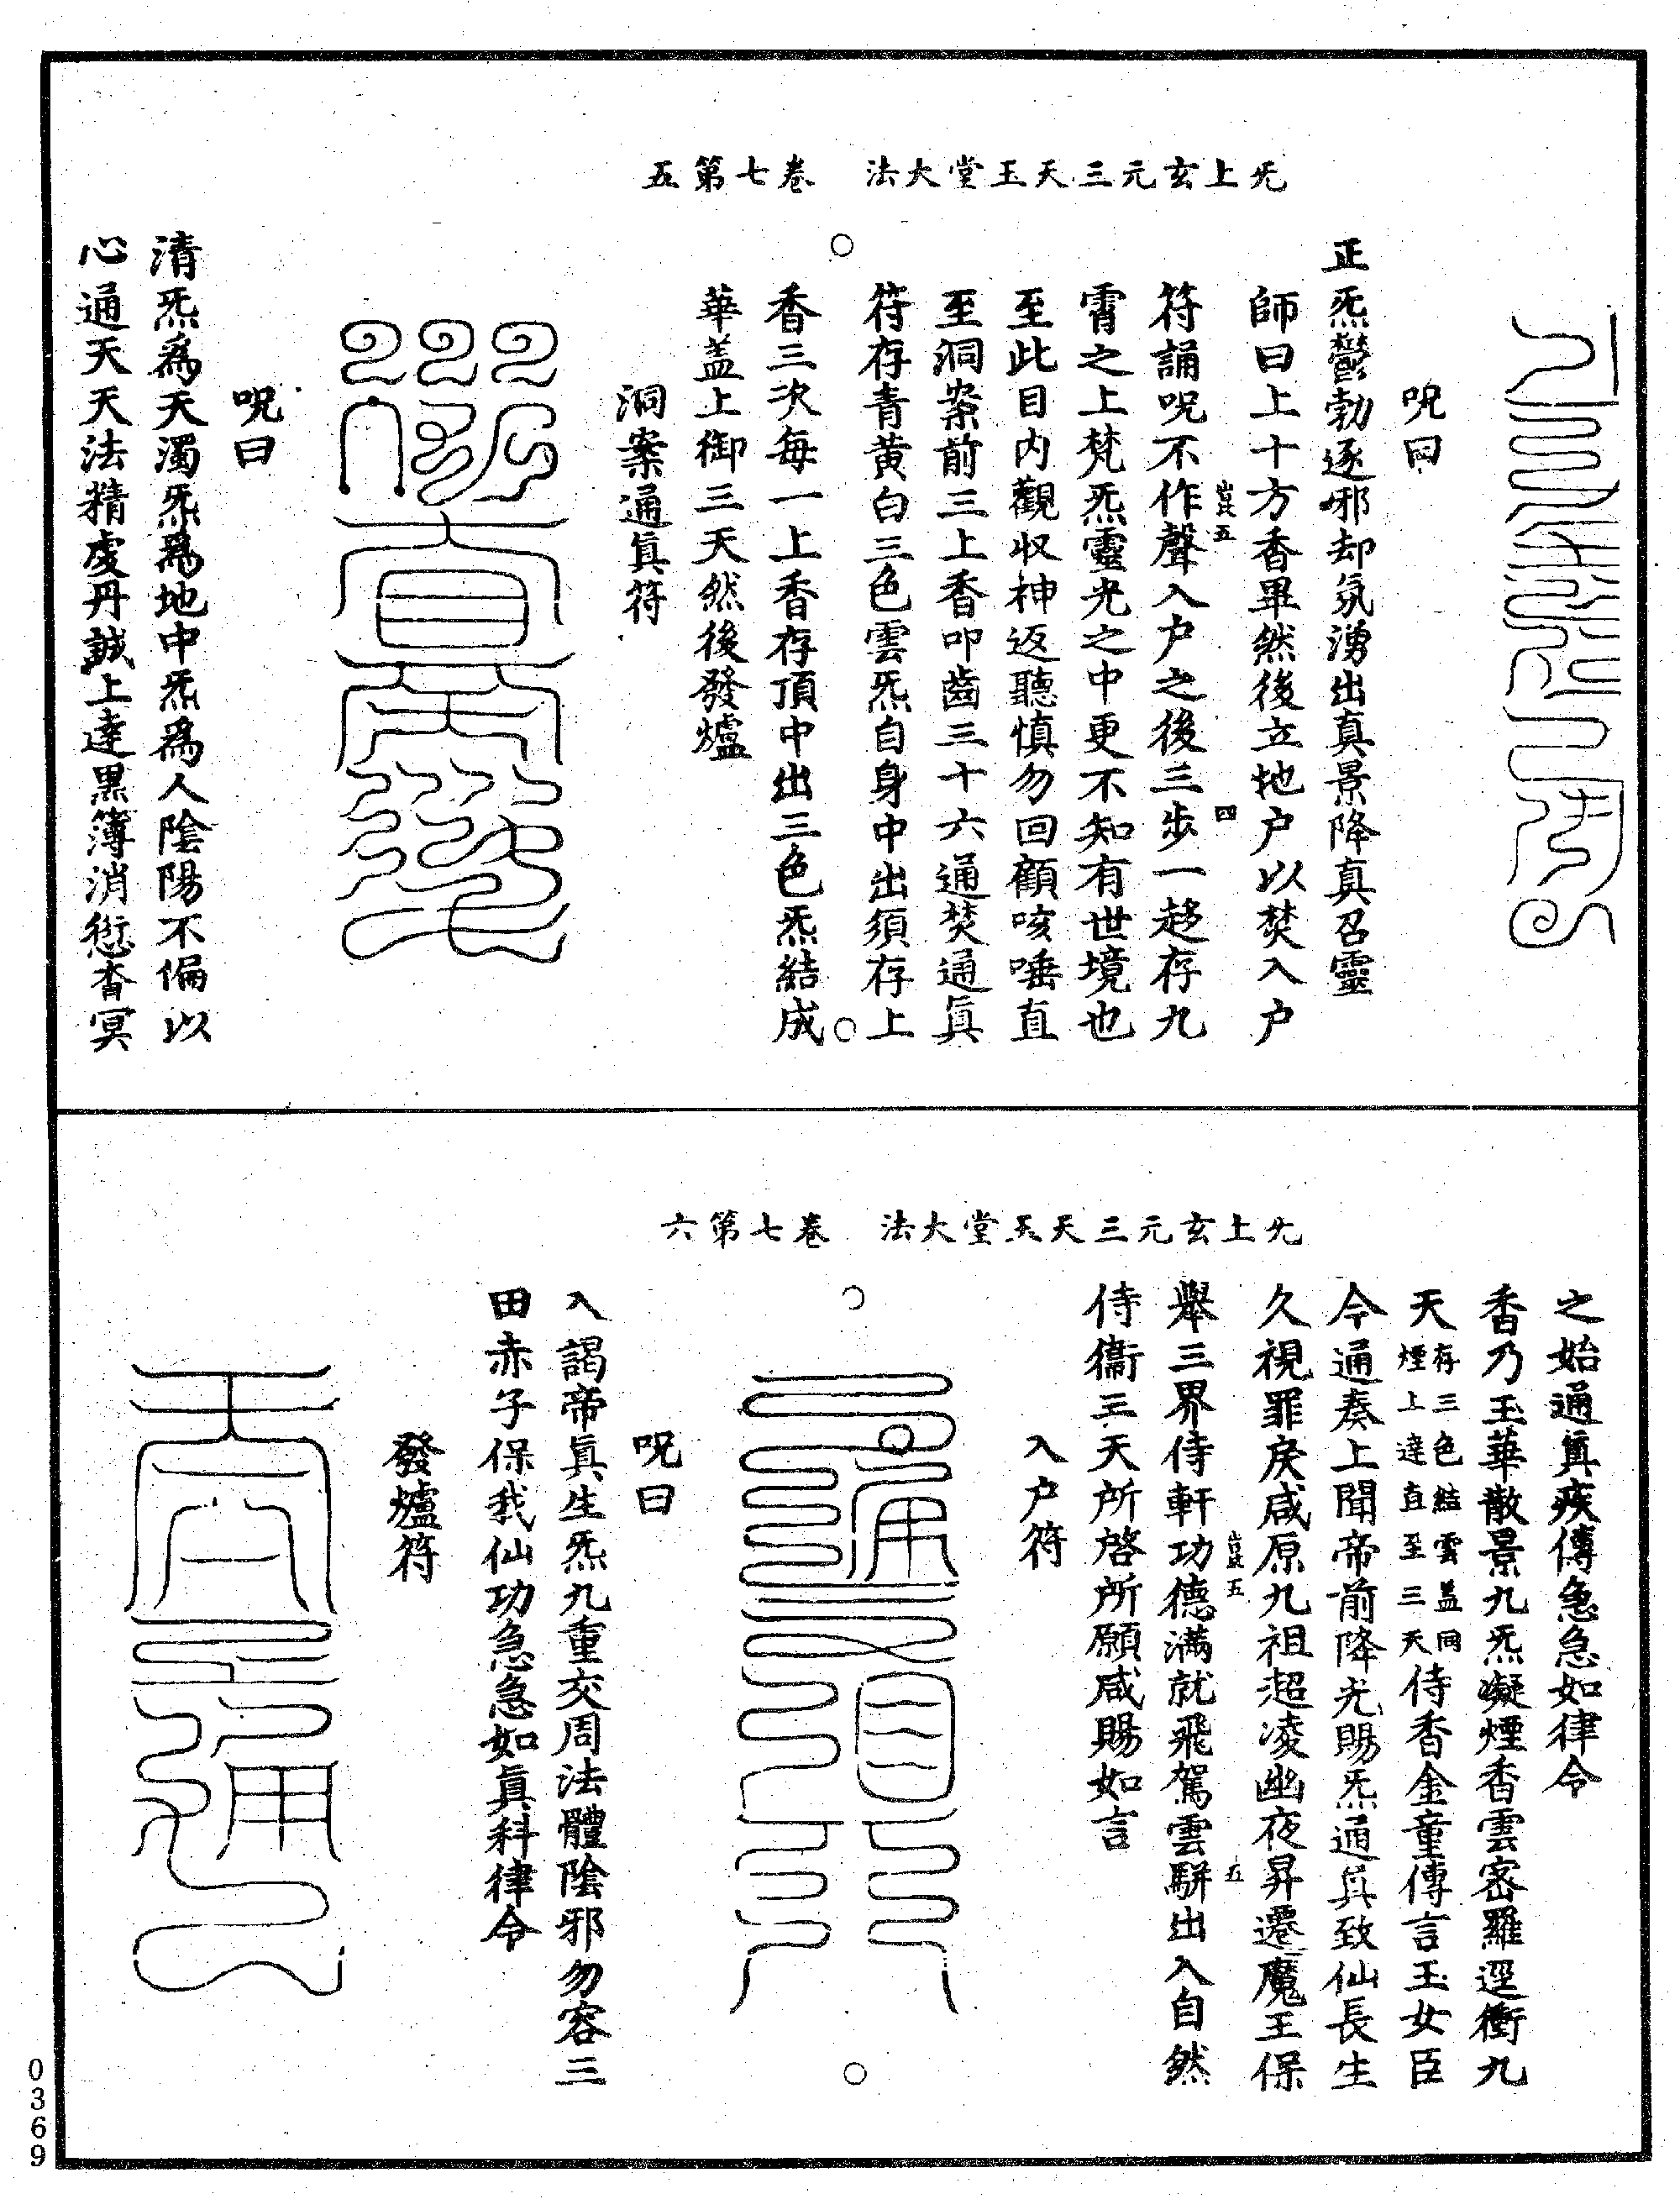 无上玄元三天玉堂大法　卷七第五
呪曰
正炁鬱勃逐邪却氛湧出真景降真召靈
師曰上十方香畢然後立地户以焚入户
符誦呪不作聲入户之後三步一趍存九
霄之上梵炁靈光之中更不知有世境也
至此目内觀収神返聽慎勿回顧咳唾直
至洞案前三上香叩齒三十六通焚通真
符存青黄白三色雲炁自身中出須存上
香三次每一上香存頂中出三色炁結成
華盖上御三天然後發爐
洞案通真符
呪曰
清炁爲天濁炁爲地中炁爲人陰陽不偏以
心通天天法精虔丹誠上達黑簿消愆杳冥
五
四
无上玄元三天玉堂大法　卷七第六
之始通真疾傳急急如律令
香乃玉華散景九炁凝煙香雲密羅逕衝九
天存三色結雲盖同煙上達直至三天侍香金童傳言玉女臣
今通奏上聞帝前降光賜炁通真致仙長生
久視罪戾咸原九祖超凌幽夜昇遷魔王保
舉三界侍軒功德滿就飛駕雲駢出入自然
侍衞三天所啓所願咸賜如言
五
五
入户符
呪曰
入謁帝真生炁九重交周法體陰邪勿容三
田赤子保我仙功急急如真科律令
發爐符
0369